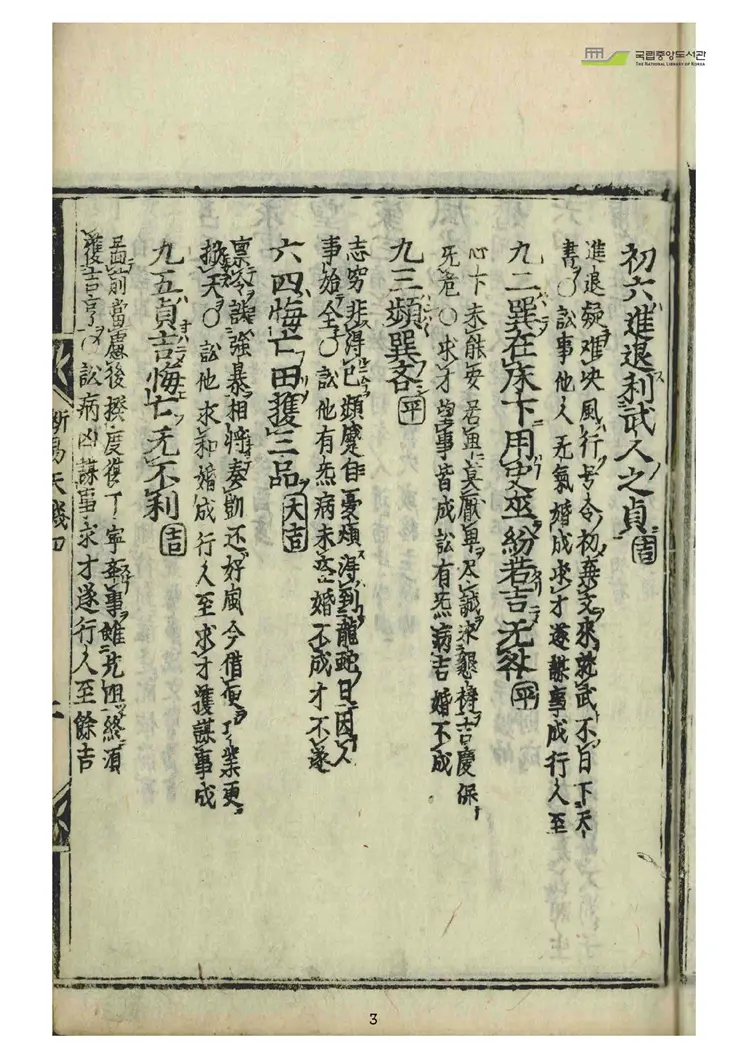 국립중앙도서관
THE NATIONAL LIBRARY OF KOREA
初六進退利武人之貞 吉
進退疑難决風行号令初棄文來就武不日下天
書○訟事他人无氣婚成求才遂謀事成行人至
九二巽在床下用史巫紛若吉无咎 平
心下未能安若
莫厭卑尽誠求懇禱吉慶保
无危○求才望事皆成訟有炁病吉婚不成
九三頻巽吝 平
志窮非得已頻蹙自憂煩得到龍蛇日因人
事始全○訟他有炁病未痊婚不成才不遂
六四悔亡田獲三品 大吉
稟令誅強暴相將奏凱还好風今借便
業更
天○訟他求和婚成行人至求才獲謀事成
九五貞吉悔亡无不利 吉
面前當慮後揆度復丁寧
事雖見阻終須
獲吉亨○訟病凶謀事求才遂行人至餘吉
断易天機四
3